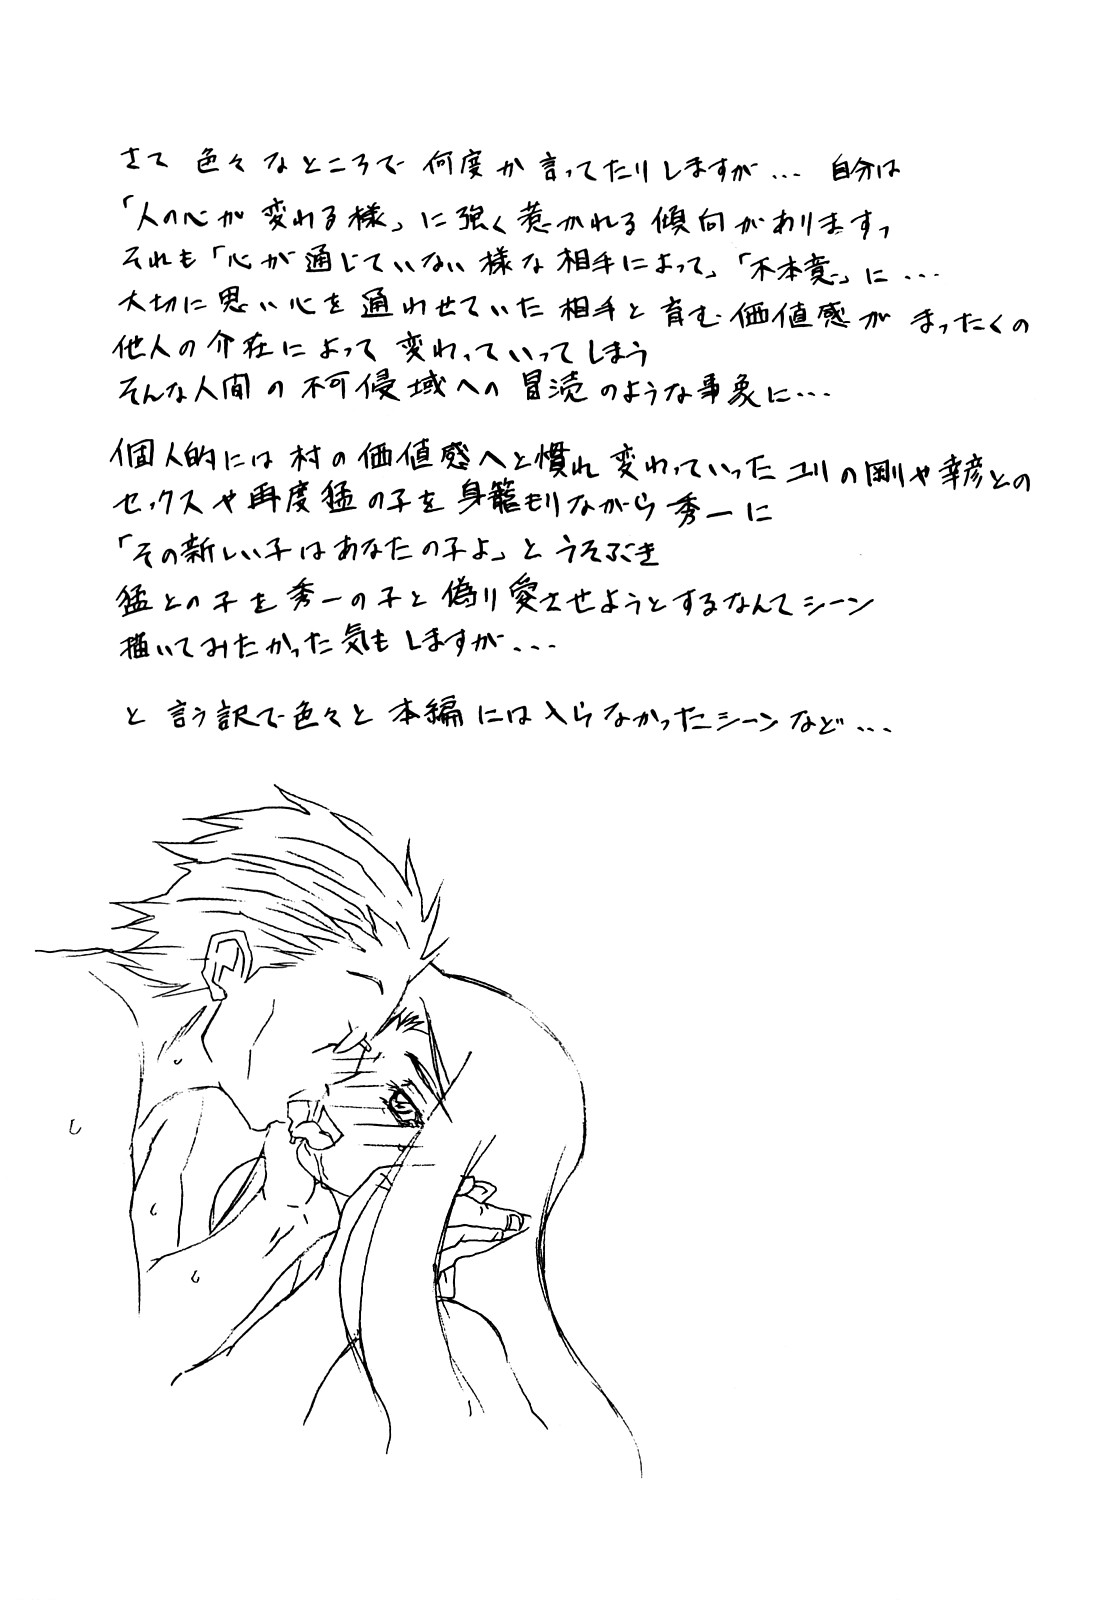 さて 色々なところで 何度か 言ってたりしますが... 自分は
「人の心が 変わる様」に強く惹かれる傾向があります、
それも「心が通じていない様な相手によって」「不本意」に...
大切に思い心を通わせていた相手と育む価値感が まったくの
他人の介在によって 変わっていってしまう
そんな人間の不可侵域への冒涜のような事象に...
個人的には村の価値感へと慣れ変わっていったユリの剛や幸彦との
セックスや再度猛の子を身籠もりながら秀一に
「その新しい子はあなたの子よ」とうそぶき
猛との子を秀一の子と偽り愛させようとするなんてシーン
描いてみたかった気もしますが...
と 言う訳で色々と 本編には入らなかったシーンなど...